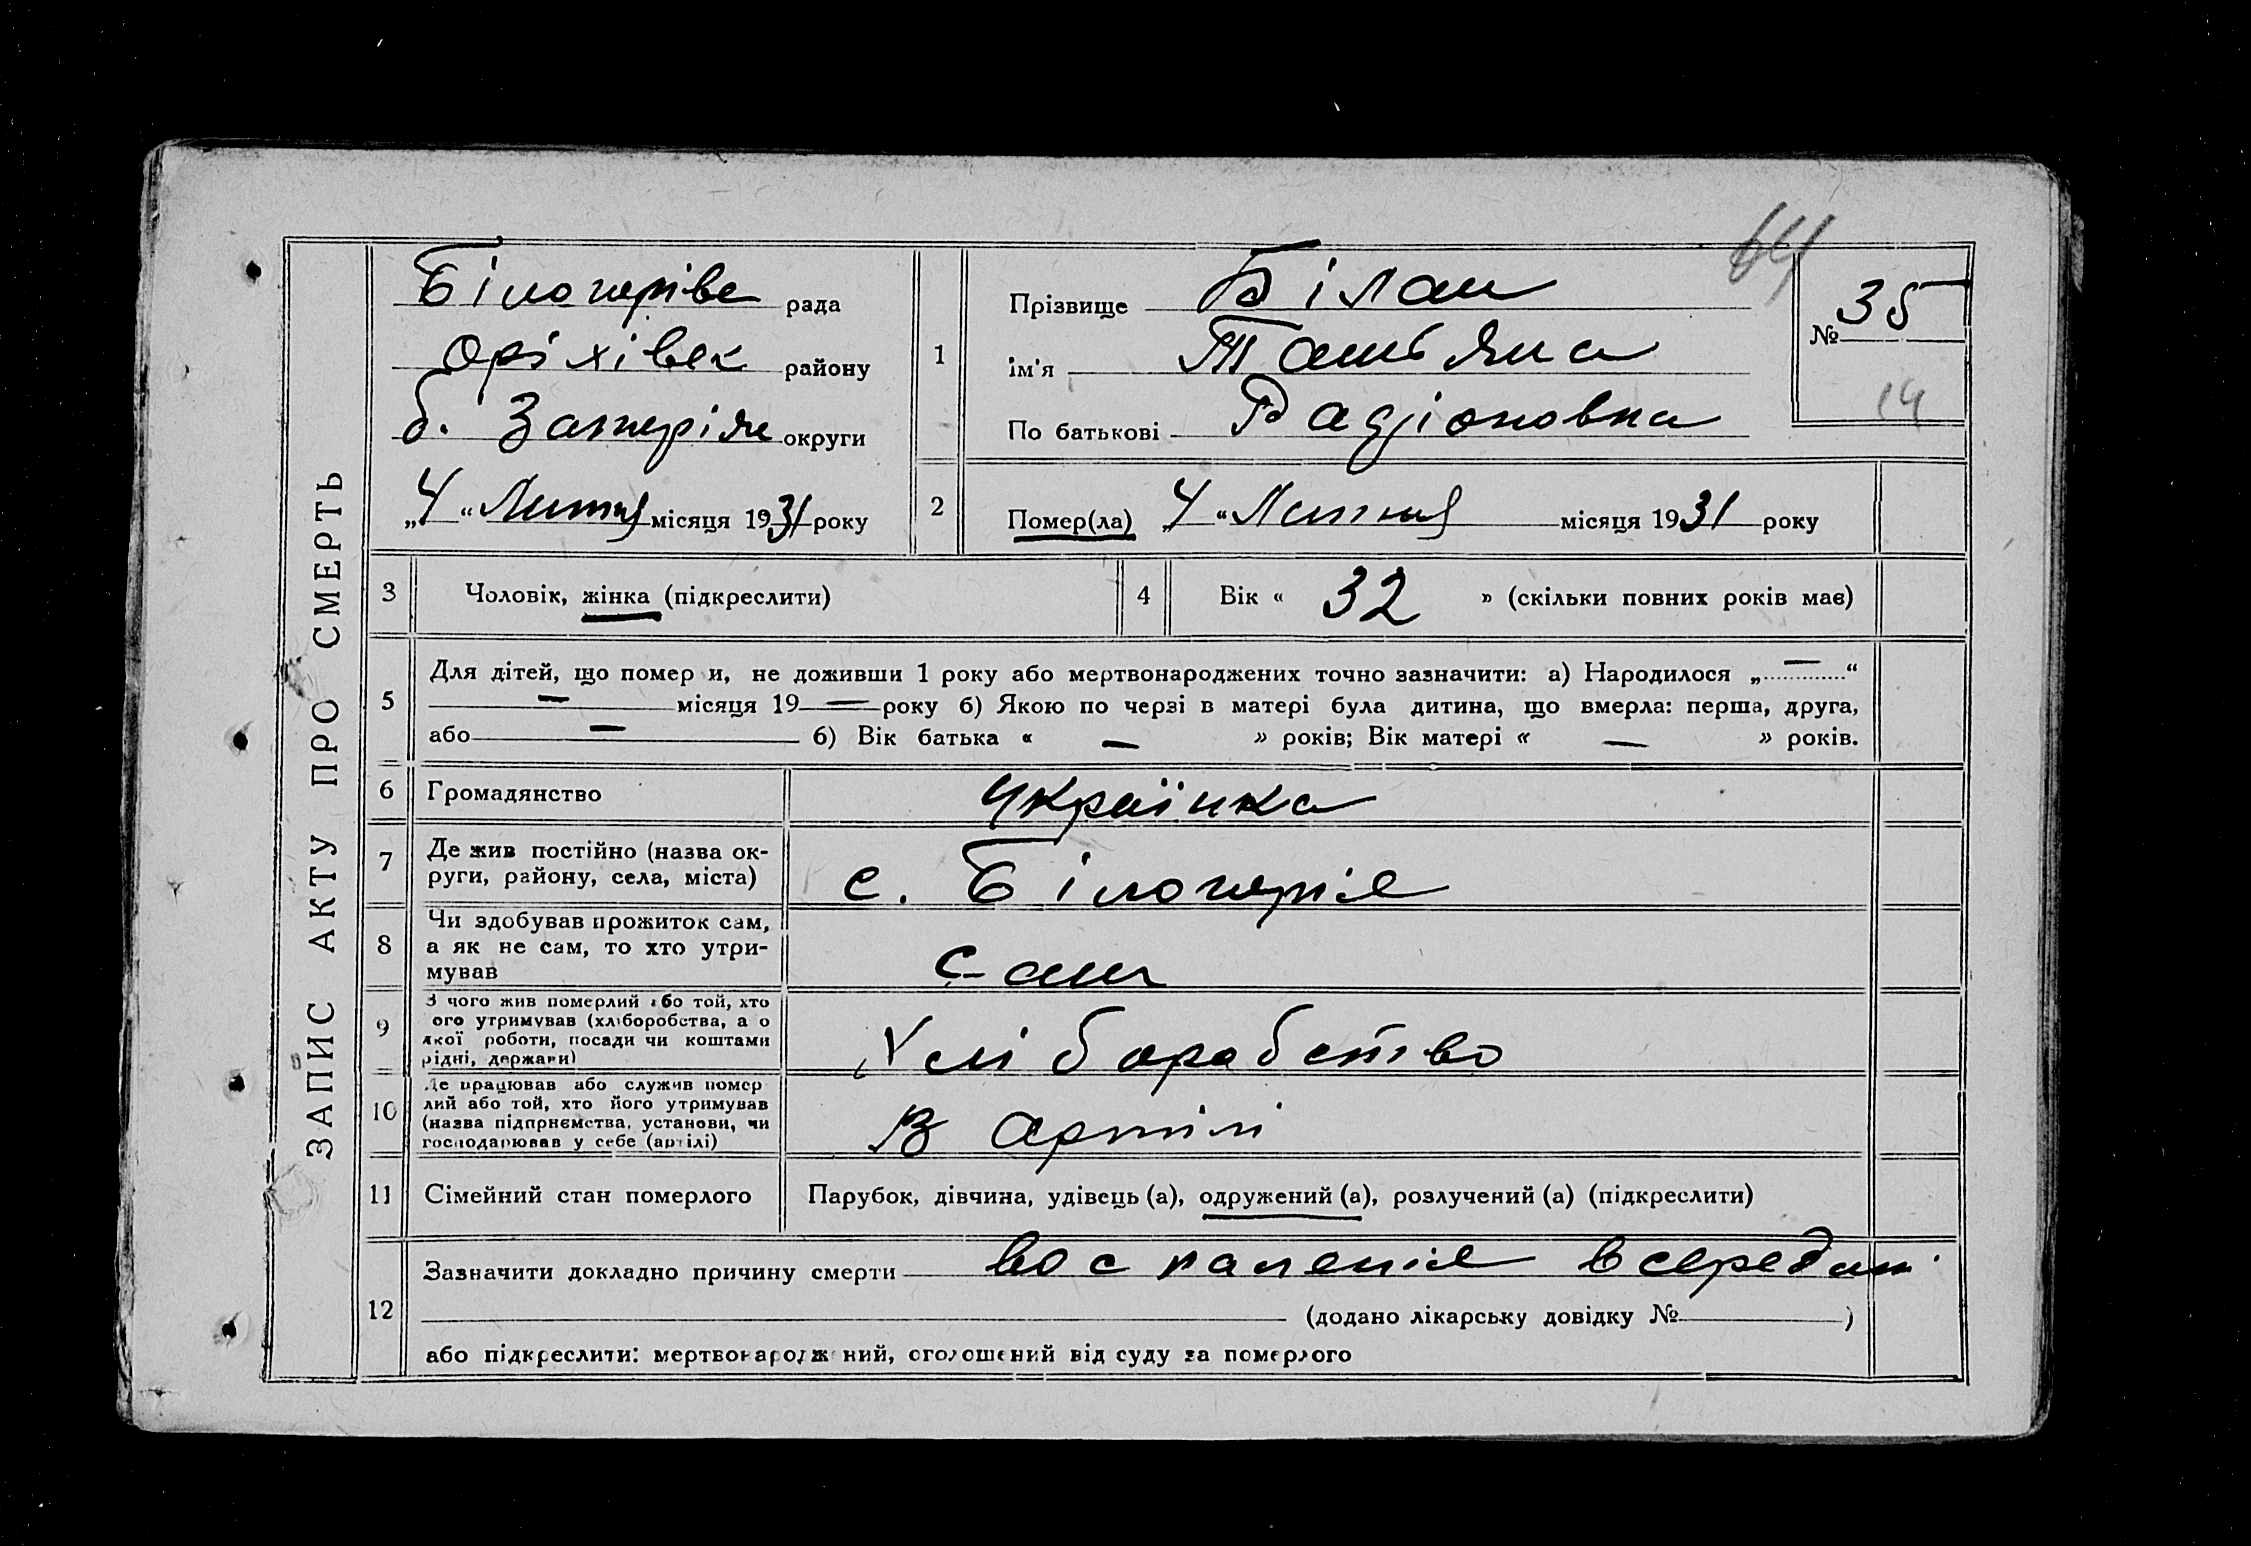 ЗАПИС АКТУ ПРО СМЕРТЬ
64
Білогорівс рада
Оріхівск району
б. Запоріж округи
„4“ Лютня місяця 1931 року
1
Прізвище Білан
ім'я Татьяна
По батькові Радіоновна
№ 35
14
2
Помер(ла) „4“ Лютня місяця 1931 року
3 Чоловік, жінка (підкреслити)
4 Вік « 32 » (скільки повних років має)
5
Для дітей, що помер и, не доживши 1 року або мертвонароджених точно зазначити: а) Народилося „—“
— місяця 19 — року б) Якою по черзі в матері була дитина, що вмерла: перша, друга,
або — б) Вік батька « — » років; Вік матері « — » років.
6 Громадянство Українка
7 Де жив постійно (назва ок-
руги, району, села, міста)
с. Білогоріє
8 Чи здобував прожиток сам,
а як не сам, то хто утри-
мував
сам
9 З чого жив померлий або той, хто
ого утримував (хліборобства, а о
якої роботи, посади чи коштами
рідні, держави)
Хліборобство
10 Де працював або служив помер
лий або той, хто його утримував
(назва підприємства, установи, чи
господарював у себе (артілі)
В Артілі
11 Сімейний стан померлого Парубок, дівчина, удівець (а), одружений (а), розлучений (а) (підкреслити)
12
Зазначити докладно причину смерти воспаленіє всередині
(додано лікарську довідку № )
або підкреслити: мертвонароджений, оголошений від суду за померлого